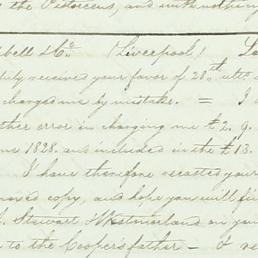 the Victoreens, and with nothing
bell & Co. (Liverpool)
duly received your favor of 28th ulto
charged me by mistake. = I
other error in charging me £2. 9.
1828. and included in the £13.
I have therefore recasted your
copy, and hope you will fi
Stewart Westmorland on you
to the Cooper's father — &